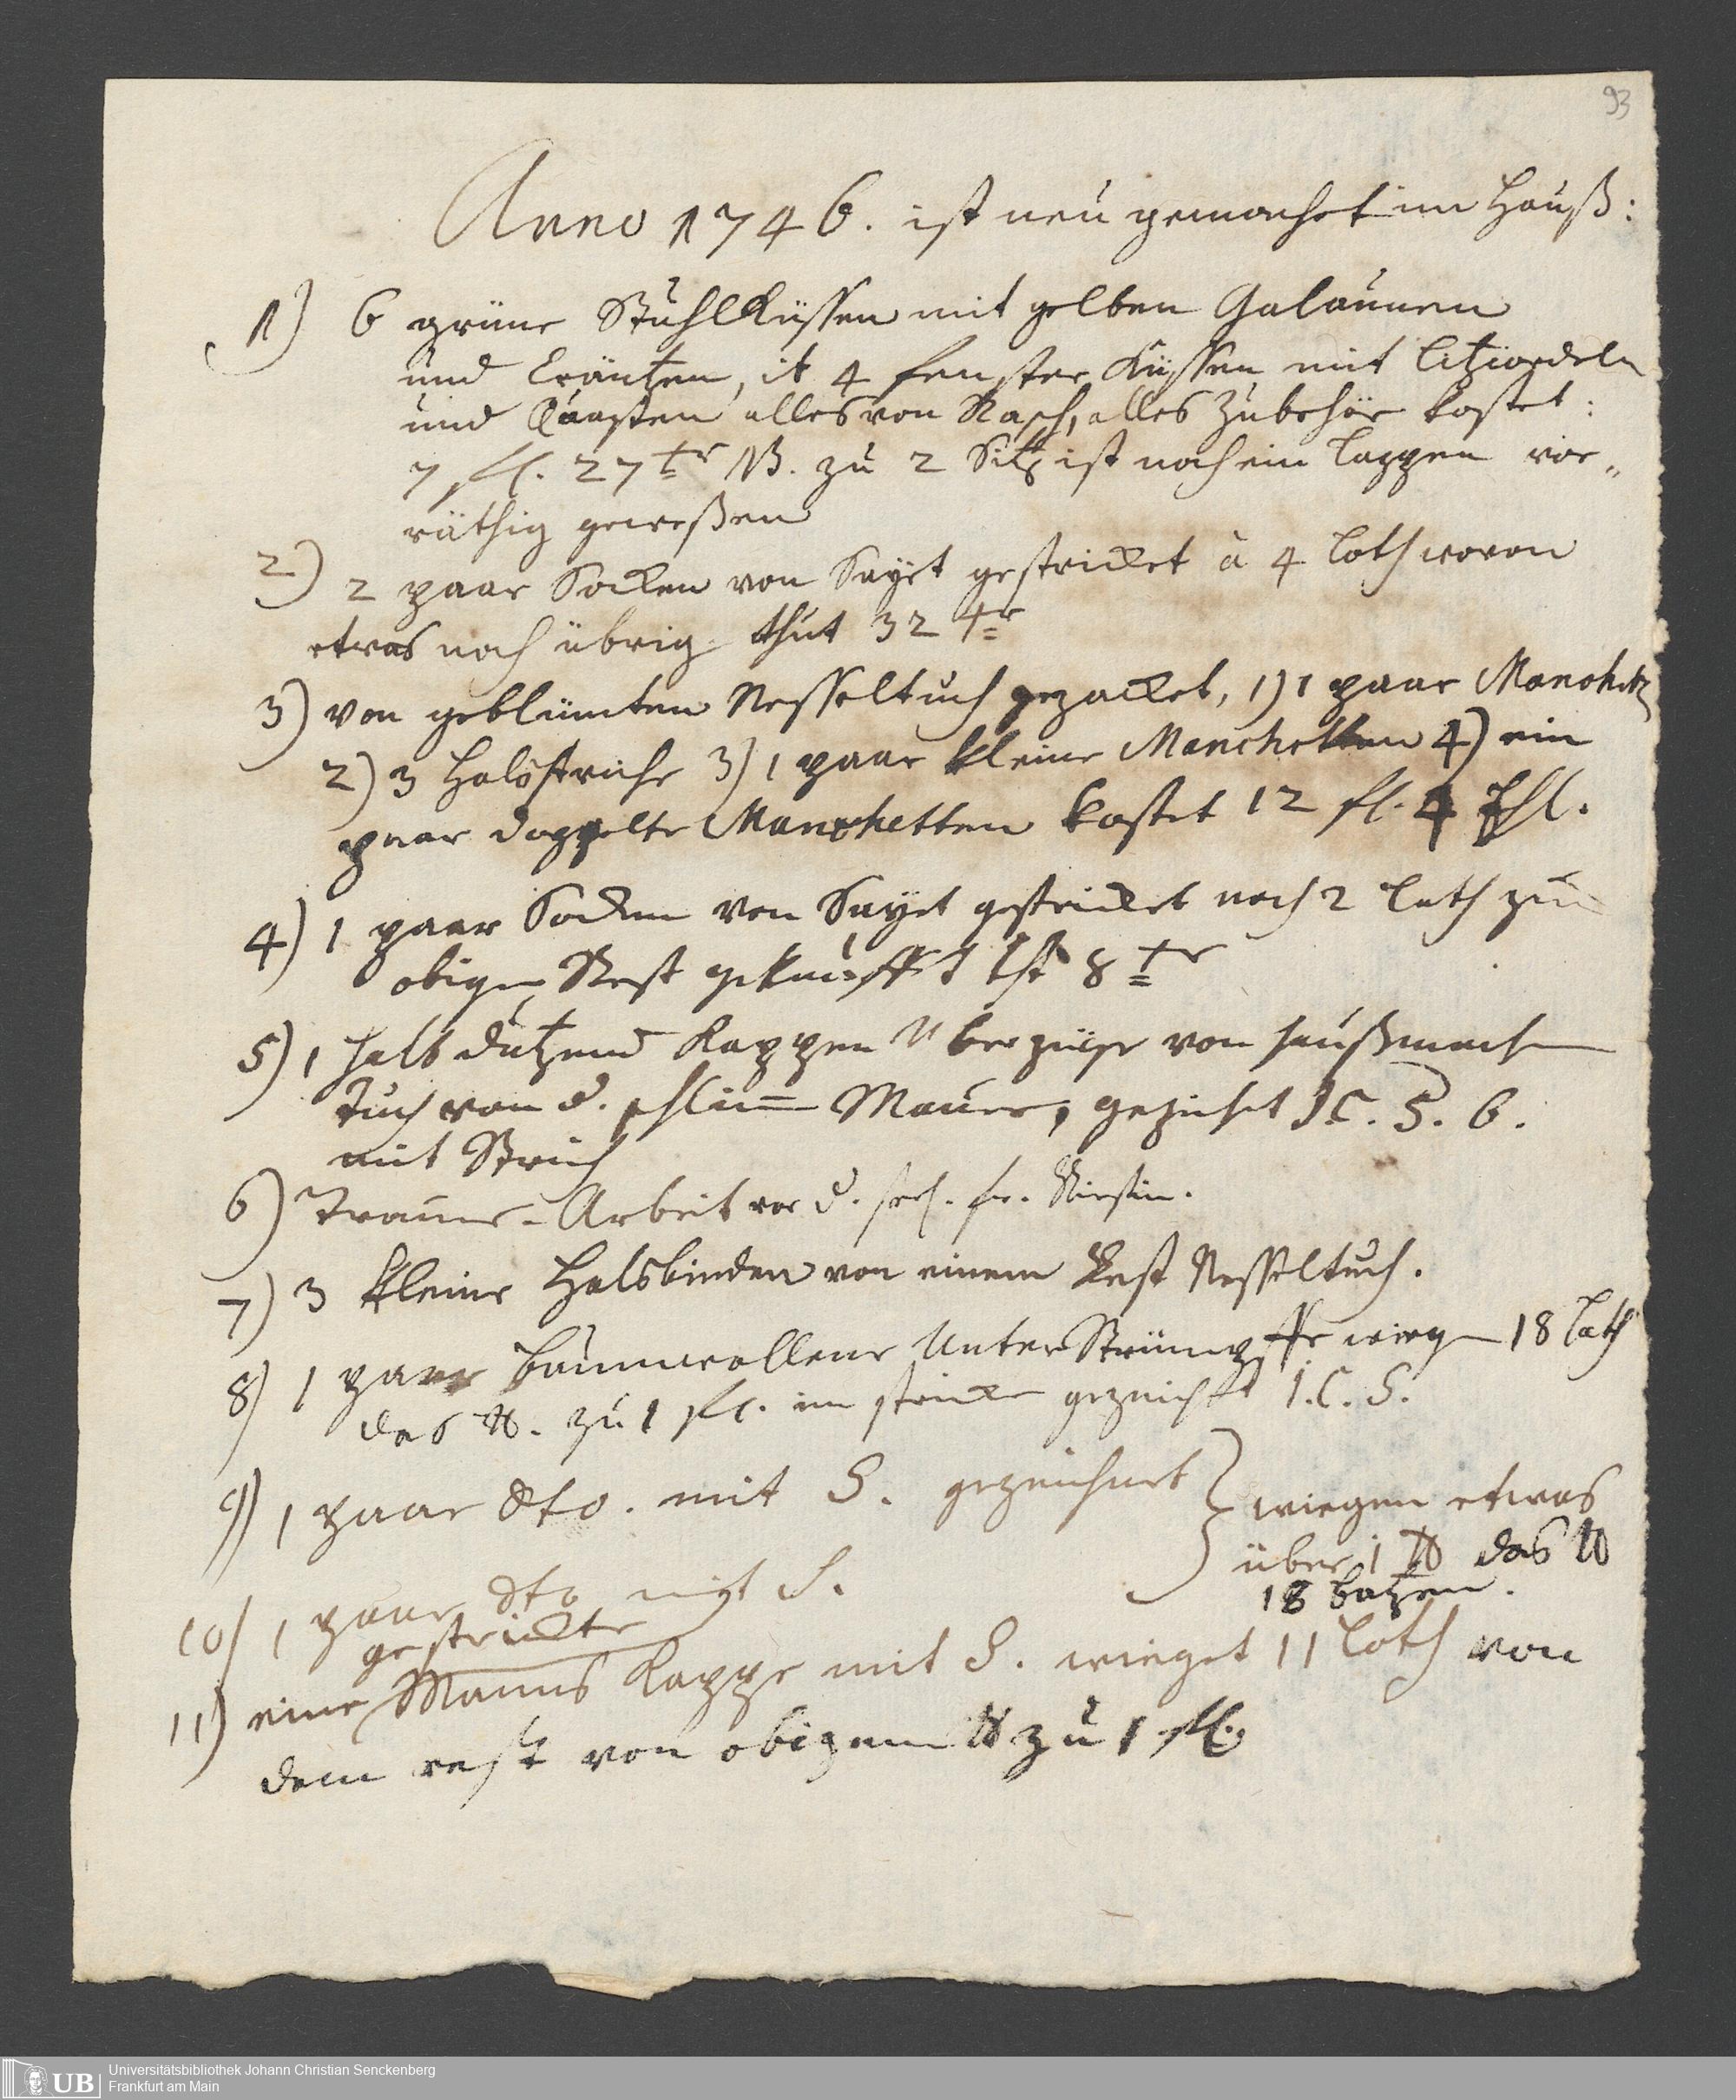 93
Anno 1746. ist neu gemachet im Hauß:
1) 6 grüne Stuhlküssen mit gelben Galaunen
und Cräntzen, it 4 fenster Küssen mit
und Quasten alles von Rasch, alles Zubehör kostet:
7 fl. 27 xr NB. zu 2 Sitz ist noch ein Lappen vor-
räthig geweßen
2) 2 paar Socken von Sayet gestricket à 4 loth wovon
etwas noch übrig thut 32 xr
3) von geblümten Nesseltuch gezacket, 1) 1 paar
2) 3 Halsstriche 3) 1 paar kleine Manchetten 4) ein
paar doppelte Manchetten kostet 12 fl. 4
4) 1 paar Socken von Sayet gestricket noch 2 loth zu
obigen Rest gekaufft 8 xr
5) 1 halb dutzend Kappen Uberzüge von haußmachen
Tuch von d. Mauer, gezeichnet J.C.S. 6.
mit Strich
6) Trauer-Arbeit vor d. seel. fr.
7) 3 kleine Halsbinden von einem Rest Nesseltuch.
8) 1 paar baumwollene Unter Strümpffe wiegen 18 loth
das ℔. zu 1 fl. im stricken gezeichnet J.C.S.
9) 1 paar dto. mit S. gezeichnet
wiegen etwas
über 1 ℔ das ℔
18 batzen.
10) 1 paar dto mit S.
gestrickte
11) eine Manns Kappe mit S. wieget 11 loth von
dem rest von obigem ℔ zu 1 fl.
UB
Universitätsbibliothek Johann Christian Senckenberg
Frankfurt am Main